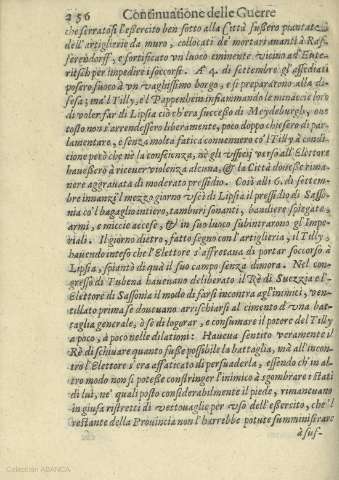 256 Continuatione delle Guerre
che serratosi l'essercito ben sotto alla Città fussero piantate
dell'artiglierie da muro, collocati de' mortari auanti à Raf-
ferendorff, e fortificato vn luoco eminente vicino ad Eute-
ritsch per impedire i soccorsi. A 4. di settembre gl'assediati
posero fuoco à vn vaghissimo borgo, e si prepararono alla di-
fesa; mà'l Tilly, e'l Pappenheim infiammando le minaccie loro
di voler far di Lipsia ciò ch'era successo di Meydeburgh, oue
tosto non s'arrendessero liberamente, poco doppo chiesero di par-
lamentare, e senza molta fatica conuenero co'l Tilly à condi-
tione però che nè la conscienza, nè gli vfficij verso all'Elettore
hauessero à riceuer violenza alcuna, & la Città douesse rima-
nere aggrauata di moderato pressidio. Così alli 6. di settem-
bre innanzi'l mezzo giorno vscì di Lipsia il pressidio di Sasso-
nia co'l bagaglio intiero, tamburi sonanti, bandiere spiegate,
armi, e miccie accese, & in suo luogo subintrarono gl'Impe-
riali. Il giorno dietro, fatto segno con l'artiglieria, il Tilly,
hauendo inteso che l'Elettore s'affrettaua di portar soccorso à
Lipsia, spiantò di quà il suo campo senza dimora. Nel con-
gresso di Tubena haueuano deliberato il Rè di Suezzia e l'
Elettore di Sassonia il modo di farsi incontra agl'inimici, ven-
tillato prima se doueuano arrischiarsi al cimento d'vna bat-
taglia generale, ò se di logorar, e consumare il potere del Tilly
a poco, à poco nelle dilationi: Haueua sentito veramente il
Rè di schiuare quanto fusse possibile la battaglia, mà all'incon-
tro l'Elettore s'era affaticato di persuaderla, essendo ch'in al-
tro modo non si potesse constringer l'inimico à sgombrare i stati
di lui, ne' quali posto considerabilmente il piede, rimaneuano
in giusa ristretti di vettouaglie per vso dell'essercito, che'l
restante della Prouincia non l'harebbe potute sumministrare
à suf-
Colección ABANCA